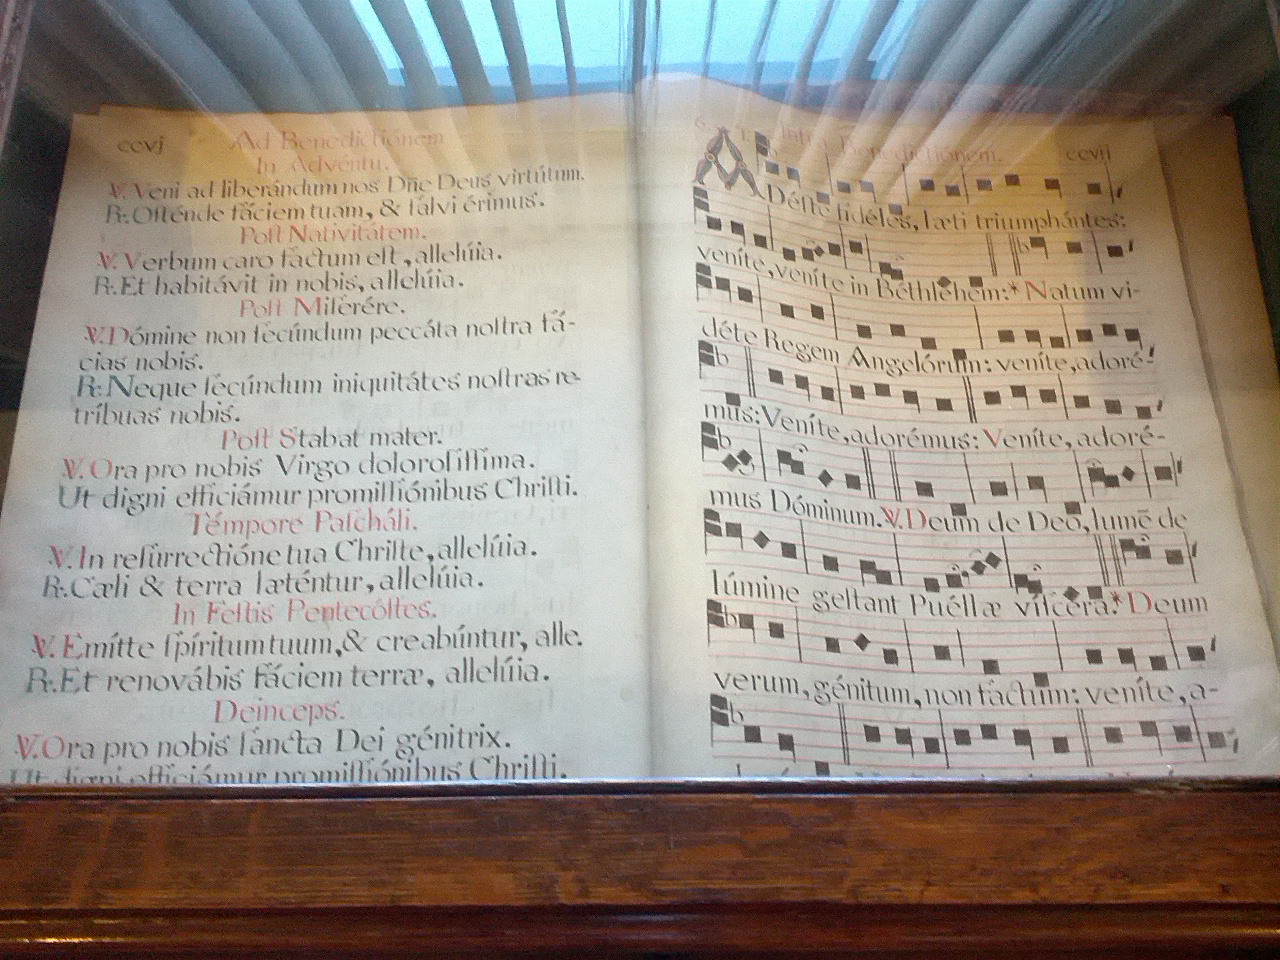 ccvj
Ad Benedictiónem
In Adventu.
V. Veni ad liberándum nos Dñe Deus virtútum.
R. Oſténde fáciem tuam, & ſalvi érimus.
Poſt Nativitátem.
V. Verbum caro factum eſt, allelúia.
R. Et habitávit in nobis, allelúia.
Poſt Miſerére.
V. Dómine non ſecúndum peccáta noſtra fá-
cias nobis.
R. Neque ſecúndum iniquitátes noſtras re-
tríbuas nobis.
Poſt Stabat mater.
V. Ora pro nobis Virgo doloroſiſſima.
Ut digni efficiámur promiſſiónibus Chriſti.
Témpore Paſcháli.
V. In reſurrectióne tua Chriſte, allelúia.
R. Cæli & terra læténtur, allelúia.
In Feſtis Pentecóſtes.
V. Emítte ſpíritum tuum, & creabúntur, alle.
R. Et renovábis fáciem terræ, allelúia.
Deinceps.
V. Ora pro nobis ſancta Dei génitrix.
Ut digni efficiámur promiſſiónibus Chriſti.
Benedictiónem. ccvij
Adéſte fidéles, læti triumphántes:
veníte, veníte in Béthlehem:* Natum vi-
déte Regem Angelórum: veníte, adoré-
mus: Veníte, adorémus: Veníte, adoré-
mus Dóminum. V. Deum de Deo, lumē de
lúmine geſtant Puéllæ víſcera:* Deum
verum, génitum, non factum: veníte, a-